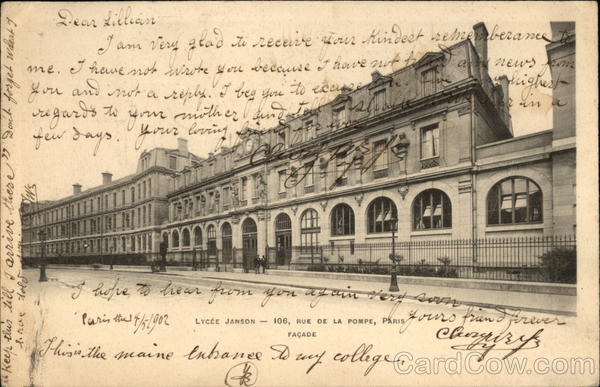 Dear Lillian
I am very glad to receive your kindest remembrance to
me. I have not wrote you because I have not had any news from
you and not a reply. I beg you to excuse highest
regards to your mother and tell in a
few days. Your loving
I hope to hear from you again very soon
Yours friend forever
Paris the 4/5/1902
LYCÉE JANSON — 106, RUE DE LA POMPE, PARIS
FAÇADE
This is the maine entrance to my college.
keep this till I arrive there "Dont forget what I
once told
CardCow.com